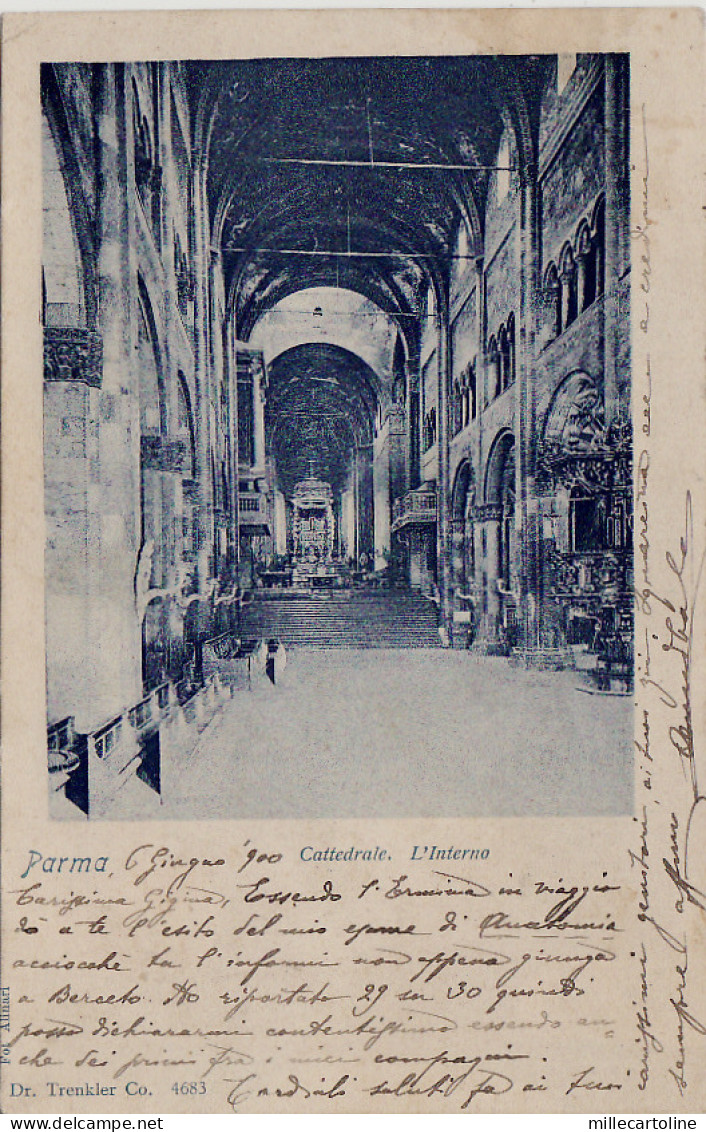 Parma, 6 Giugno '900 Cattedrale. L'Interno
Carissima Gigina, Essendo l'Ermina in viaggio
dò a te l'esito del mio esame di Anatomia
acciocchè tu l'informi non appena giunga
a Berceto. Ho riportato 29 su 30 quindi
posso dichiararmi contentissimo essendo an-
che dei primi fra i miei compagni.
Cordiali saluti fa ai tuoi
carissimi genitori, ai tuoi zii, e credimi
sempre affmo
Fot. Alinari
Dr. Trenkler Co. 4683
www.millecartoline.com